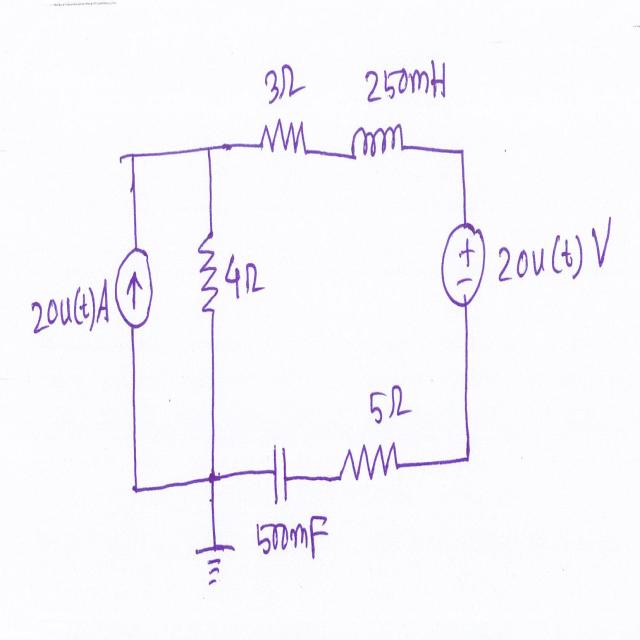 3Ω 250mH
20u(t)A
4Ω
+
-
20u(t) V
5Ω
500mF